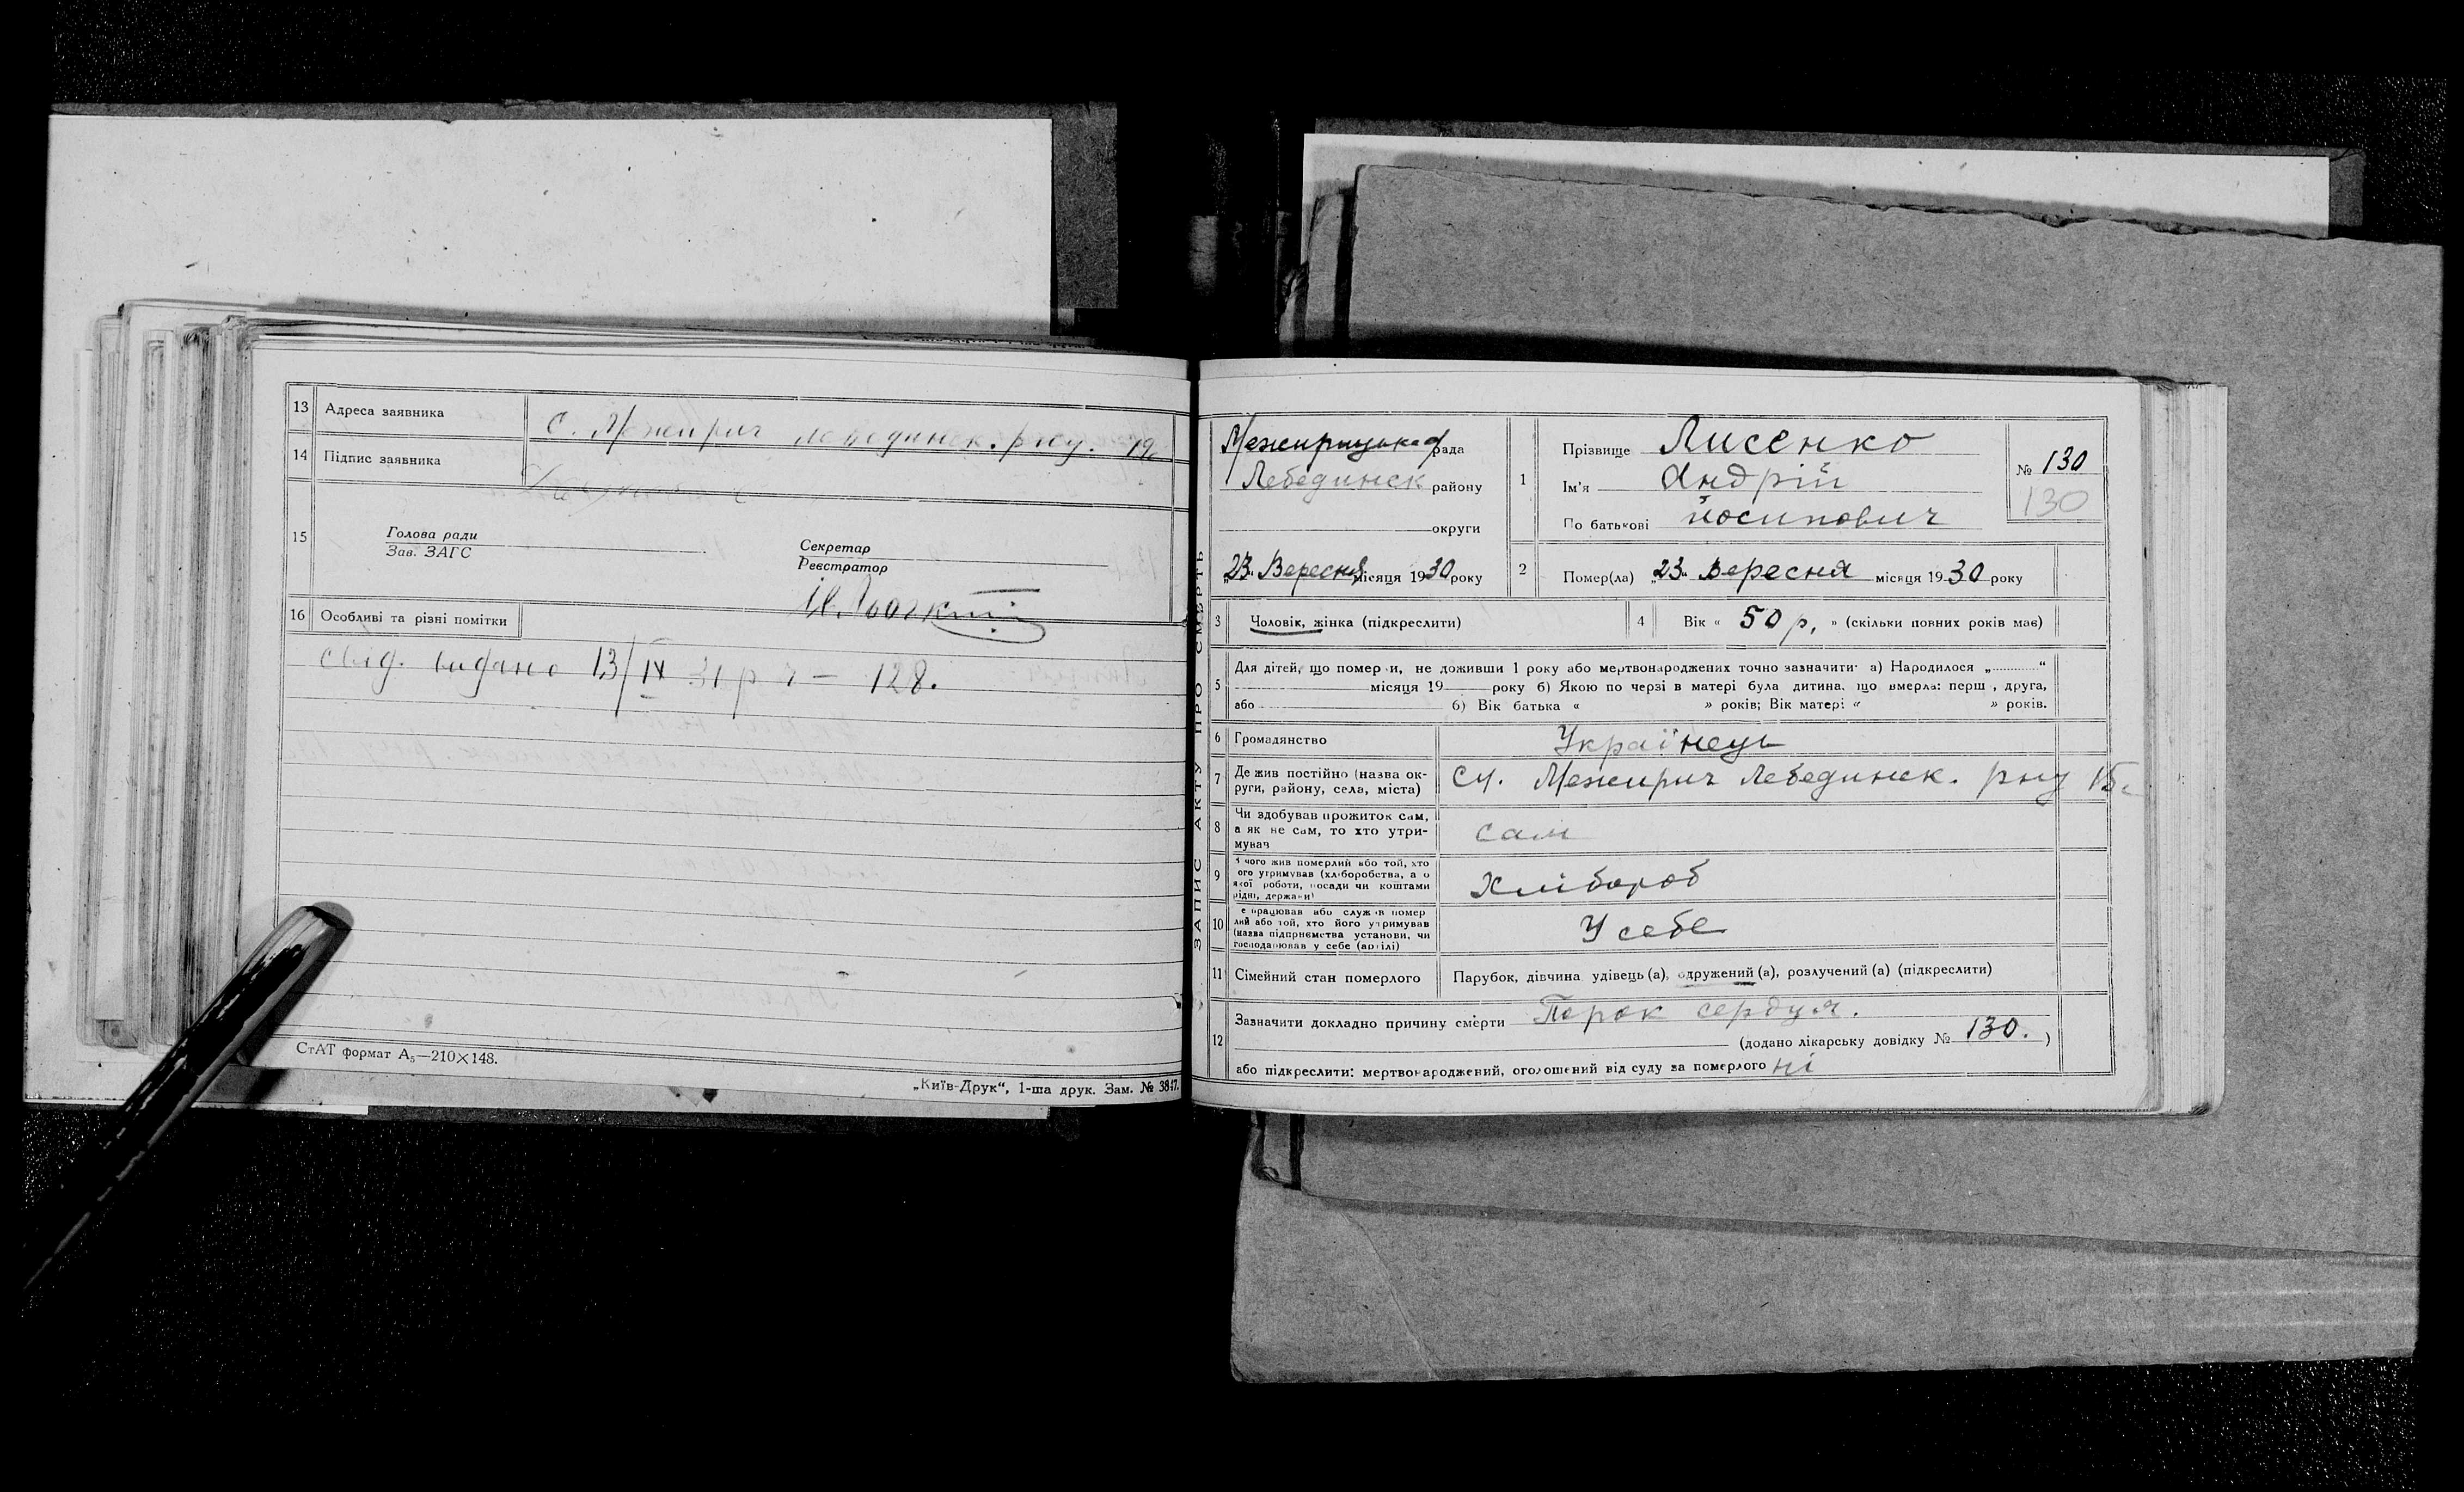 13 Адреса заявника с. Межирич лебединск. р-ну.
14 Підпис заявника
15 Голова ради
Зав. ЗАГС
Секретар
Реєстратор
16 Особливі та різні помітки
свід. видано 13/IV 31 р ч — 128.
СтАТ формат А₅—210×148.
„Київ-Друк“, 1-ша друк. Зам. № 3847.
ЗАПИС АКТУ ПРО СМЕРТЬ
Межирицька рада
Лебединск району
округи
„23“ Вересня місяця 1930 року
1 Прізвище Лисенко
Ім'я Андрій
По батькові йосипович
№ 130
130
2 Помер(ла) „23“ вересня місяця 1930 року
3 Чоловік, жінка (підкреслити)
4 Вік « 50 р. » (скільки повних років має)
5 Для дітей, що помер и, не доживши 1 року або мертвонароджених точно зазначити: а) Народилося „ “
місяця 19 року б) Якою по черзі в матері була дитина, що вмерла: перш , друга,
або б) Вік батька « » років; Вік матері « » років.
6 Громадянство Українець
7 Де жив постійно (назва ок-
руги, району, села, міста) с. Межирич Лебединск. р-ну
8 Чи здобував прожиток сам,
а як не сам, то хто утри-
мував сам
9 чого жив померлий або той, хто
ого утримував (хліборобства, а о
якої роботи, посади чи коштами
рідні, держави) Хлібороб
10 е працював або служ в помер
лий або той, хто його утримував
(назва підприємства установи, чи
господарював у себе (артілі) У себе
11 Сімейний стан померлого Парубок, дівчина, удівець (а), одружений (а), розлучений (а) (підкреслити)
12 Зазначити докладно причину смерти Порок сердця.
(додано лікарську довідку № 130. )
або підкреслити: мертвонароджений, оголошений від суду за померлого ні